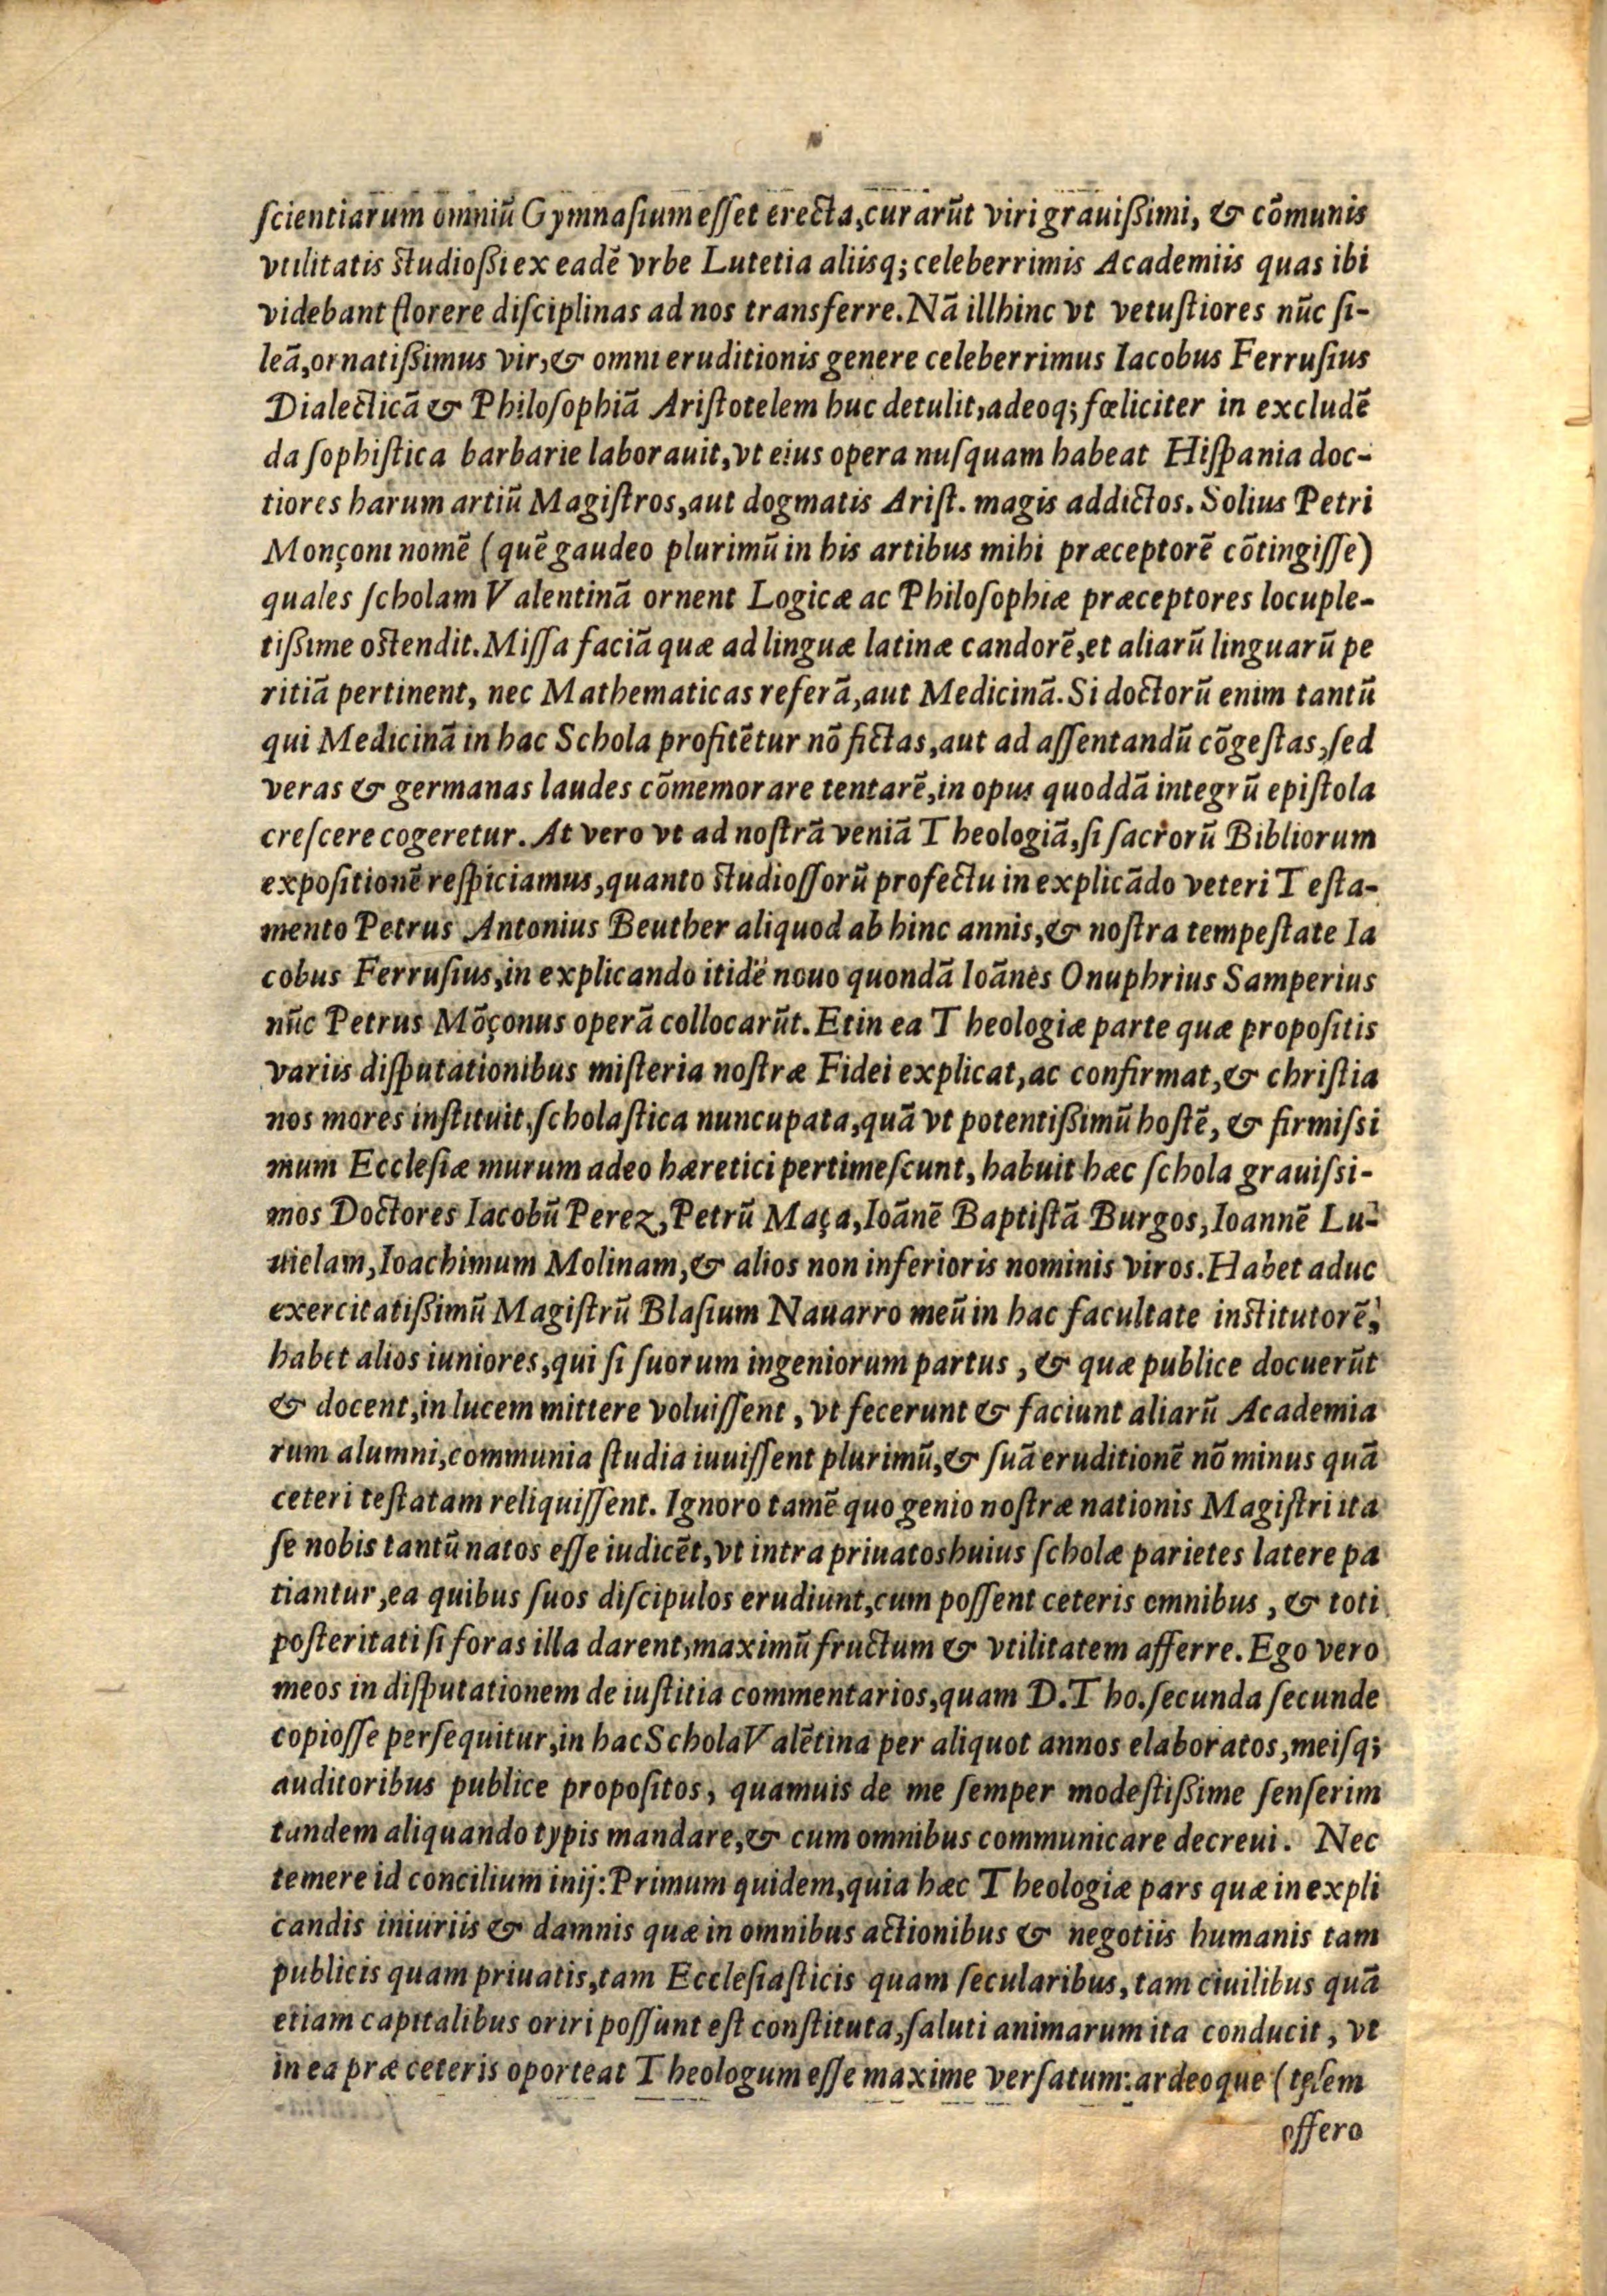 ſcientiarum omniũ Gymnaſium eſſet erecta, curarũt viri grauiſsimi, & cõmunis
vtilitatis studioſsi ex eadẽ vrbe Lutetia aliisq; celeberrimis Academiis quas ibi
videbant florere diſciplinas ad nos transferre. Nã illhinc vt vetuſtiores nũc ſi-
leã, ornatiſsimus vir, & omni eruditionis genere celeberrimus Iacobus Ferruſius
Dialecticã & Philoſophiã Ariſtotelem huc detulit, adeoq; fœliciter in excludẽ
da ſophiſtica barbarie laborauit, vt eius opera nuſquam habeat Hiſpania doc-
tiores harum artiũ Magiſtros, aut dogmatis Ariſt. magis addictos. Solius Petri
Monçoni nomẽ (quẽ gaudeo plurimũ in his artibus mihi præceptorẽ cõtingiſſe)
quales ſcholam Valentinã ornent Logicæ ac Philoſophiæ præceptores locuple-
tiſsime ostendit. Miſſa faciã quæ ad linguæ latinæ candorẽ, et aliarũ linguarũ pe
ritiã pertinent, nec Mathematicas referã, aut Medicinã. Si doctorũ enim tantũ
qui Medicinã in hac Schola profitẽtur nõ fictas, aut ad aſſentandũ cõgeſtas, ſed
veras & germanas laudes cõmemorare tentarẽ, in opus quoddã integrũ epiſtola
creſcere cogeretur. At vero vt ad noſtrã veniã Theologiã, ſi ſacrorũ Bibliorum
expoſitionẽ reſpiciamus, quanto studioſſorũ profectu in explicãdo veteri Teſta-
mento Petrus Antonius Beuther aliquod ab hinc annis, & noſtra tempeſtate Ia
cobus Ferruſius, in explicando itidẽ nouo quondã Ioãnes Onuphrius Samperius
nũc Petrus Mõçonus operã collocarũt. Et in ea Theologiæ parte quæ propoſitis
variis diſputationibus miſteria noſtræ Fidei explicat, ac confirmat, & chriſtia
nos mores inſtituit, ſcholaſtica nuncupata, quã vt potentiſsimũ hoſtẽ, & firmiſsi
mum Eccleſiæ murum adeo hæretici pertimeſcunt, habuit hæc ſchola grauiſsi-
mos Doctores Iacobũ Perez, Petrũ Maça, Ioãnẽ Baptiſtã Burgos, Ioannẽ Lu-
uielam, Ioachimum Molinam, & alios non inferioris nominis viros. Habet aduc
exercitatiſsimũ Magiſtrũ Blaſium Nauarro meũ in hac facultate institutorẽ,
habet alios iuniores, qui ſi ſuorum ingeniorum partus, & quæ publice docuerũt
& docent, in lucem mittere voluiſſent, vt fecerunt & faciunt aliarũ Academia
rum alumni, communia ſtudia iuuiſſent plurimũ, & ſuã eruditionẽ nõ minus quã
ceteri teſtatam reliquiſſent. Ignoro tamẽ quo genio noſtræ nationis Magiſtri ita
ſe nobis tantũ natos eſſe iudicẽt, vt intra priuatos huius ſcholæ parietes latere pa
tiantur, ea quibus ſuos diſcipulos erudiunt, cum poſſent ceteris omnibus, & toti
poſteritati ſi foras illa darent, maximũ fructum & vtilitatem afferre. Ego vero
meos in diſputationem de iuſtitia commentarios, quam D. Tho. ſecunda ſecunde
copioſſe perſequitur, in hac Schola Valẽtina per aliquot annos elaboratos, meiſq;
auditoribus publice propoſitos, quamuis de me ſemper modeſtiſsime ſenſerim
tandem aliquando typis mandare, & cum omnibus communicare decreui. Nec
temere id concilium inij: Primum quidem, quia hæc Theologiæ pars quæ in expli
candis iniuriis & damnis quæ in omnibus actionibus & negotiis humanis tam
publicis quam priuatis, tam Eccleſiaſticis quam ſecularibus, tam ciuilibus quã
etiam capitalibus oriri poſſunt eſt conſtituta, ſaluti animarum ita conducit, vt
in ea præ ceteris oporteat Theologum eſſe maxime verſatum: ardeoque (teſem
offero